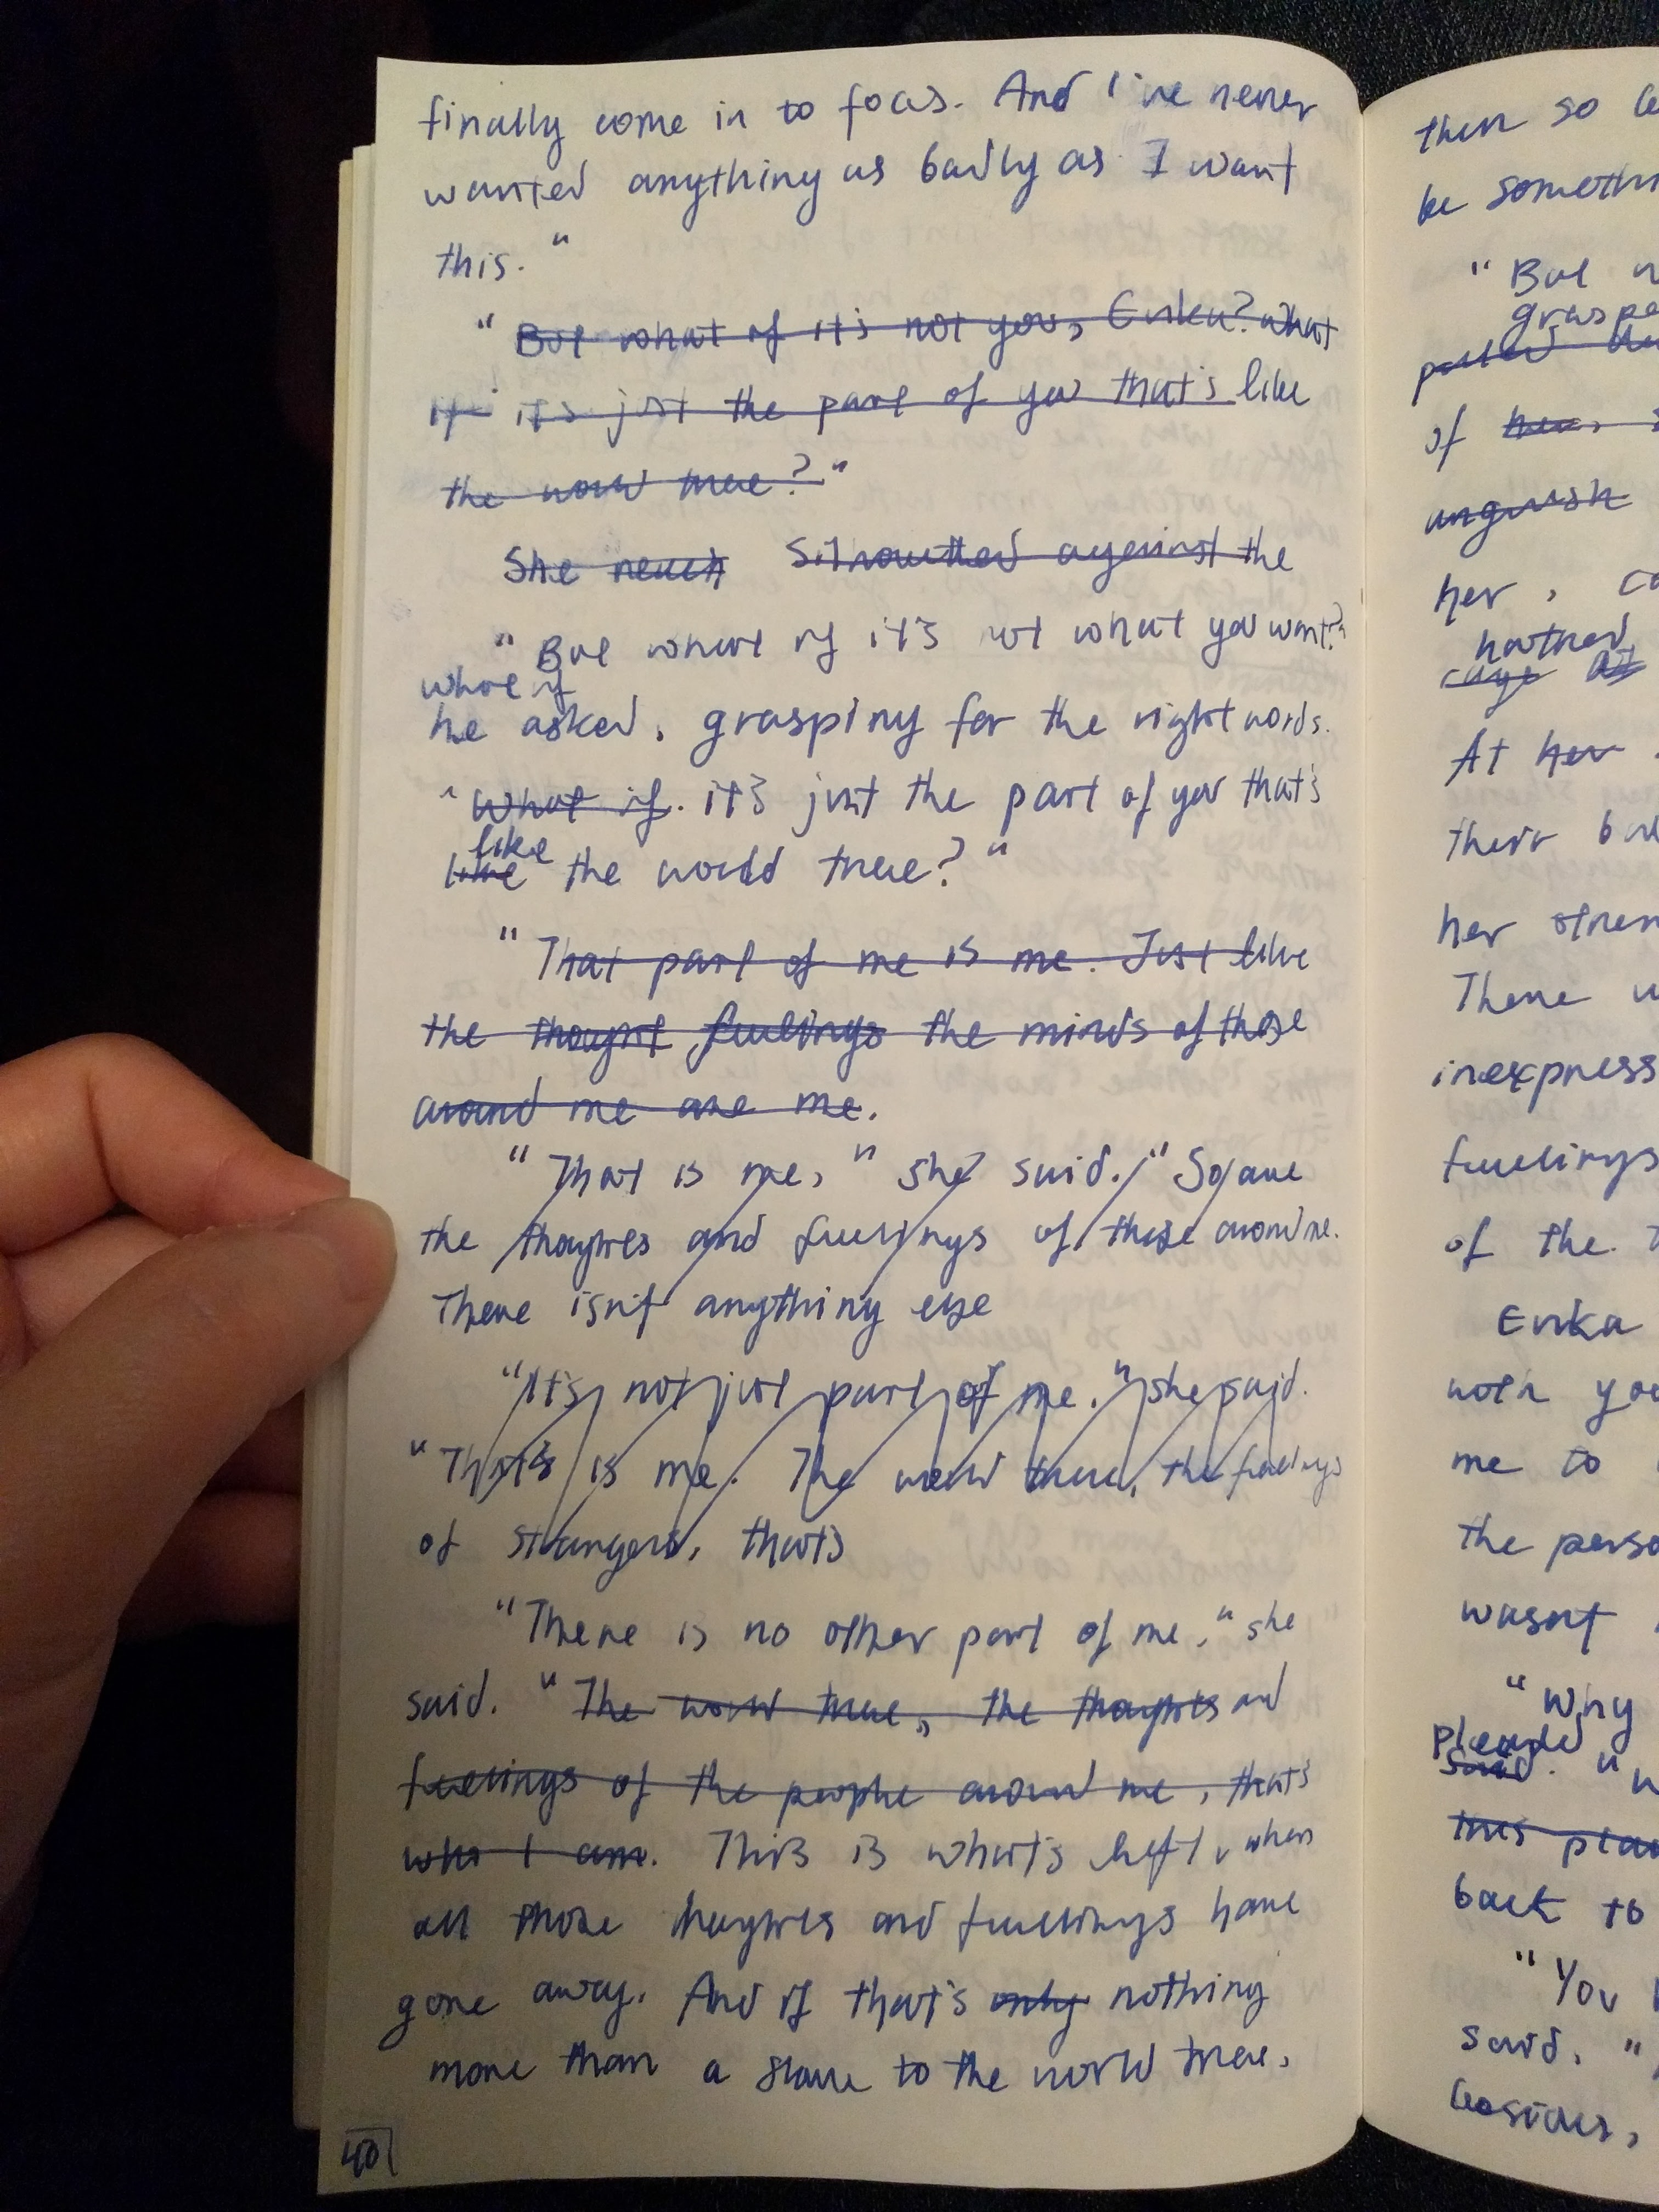 finally come in to focus. And I've never
wanted anything as badly as I want
this."
"But what if it's not you, Erika? What
if it's just the part of you that's like
the world tree?"
She Silhouetted against the
"But what if it's not what you want?"
what if
he asked, grasping for the right words.
"What if. it's just the part of you that's
like
like the world tree?"
"That part of me is me. Just like
the thought feelings the minds of those
around me are me.
"That is me," she said. "So are
the thoughts and feelings of those around me.
There isn't anything else
"It's not just part of me." she said.
"That's is me. The world tree, the feelings
of strangers, that's
"There is no other part of me," she
said. "The world tree, the thoughts and
feelings of the people around me, that's
who I am. This is what's left, when
all those thoughts and feelings have
gone away. And if that's only nothing
more than a slave to the world tree,
40
then so
be something
"But
grasped
pulled
of her,
anguish
her,
hatred
rage as
At her
their
her
There
inexpress
feelings
of the
Erika
with you
me to
the perso
wasn't
"Why
pleaded
said. "
this
back to
"You
said. "
besides,